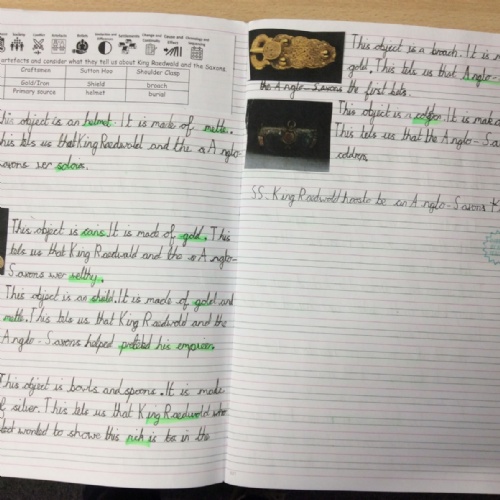 artefacts and consider what they tell us about King Raedwald and the Saxons
Craftsmen Sutton Hoo Shoulder Clasp
Gold/Iron Shield broach
Primary source helmet burial
This object is an helmet. It is made of metle.
This tels us that King Raedwald and the a Anglo-
Saxons wer
This object is coins. It is made of gold. This
tels us that King Raedwald and the a Anglo-
Saxons wer welthy.
This object is an shield. It is made of gold and
metle. This tels us that King Raedwald and the
Anglo-Saxons helped his empire.
This object is bowls and spoons. It is made
of silver. This tels us that King Raedwald who
wonted to showe this rich is to in the
This object is a broach. It is m
gold. This tels us that Anglo-
the Anglo-Saxons the first
This object is a It is make o
This tels us that the Anglo-Sa
SS. King Raedwald to be an Anglo-Saxons K